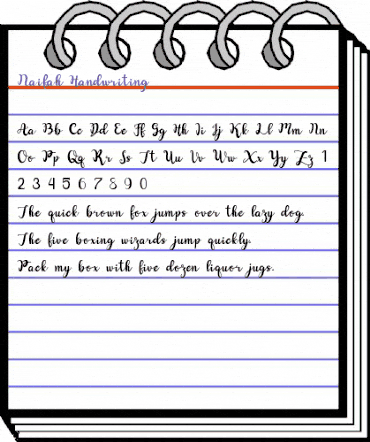 Naifah Handwriting
Aa Bb Cc Dd Ee Ff Gg Hh Ii Jj Kk Ll Mm Nn
Oo Pp Qq Rr Ss Tt Uu Vv Ww Xx Yy Zz 1
2 3 4 5 6 7 8 9 0
The quick brown fox jumps over the lazy dog.
The five boxing wizards jump quickly.
Pack my box with five dozen liquor jugs.